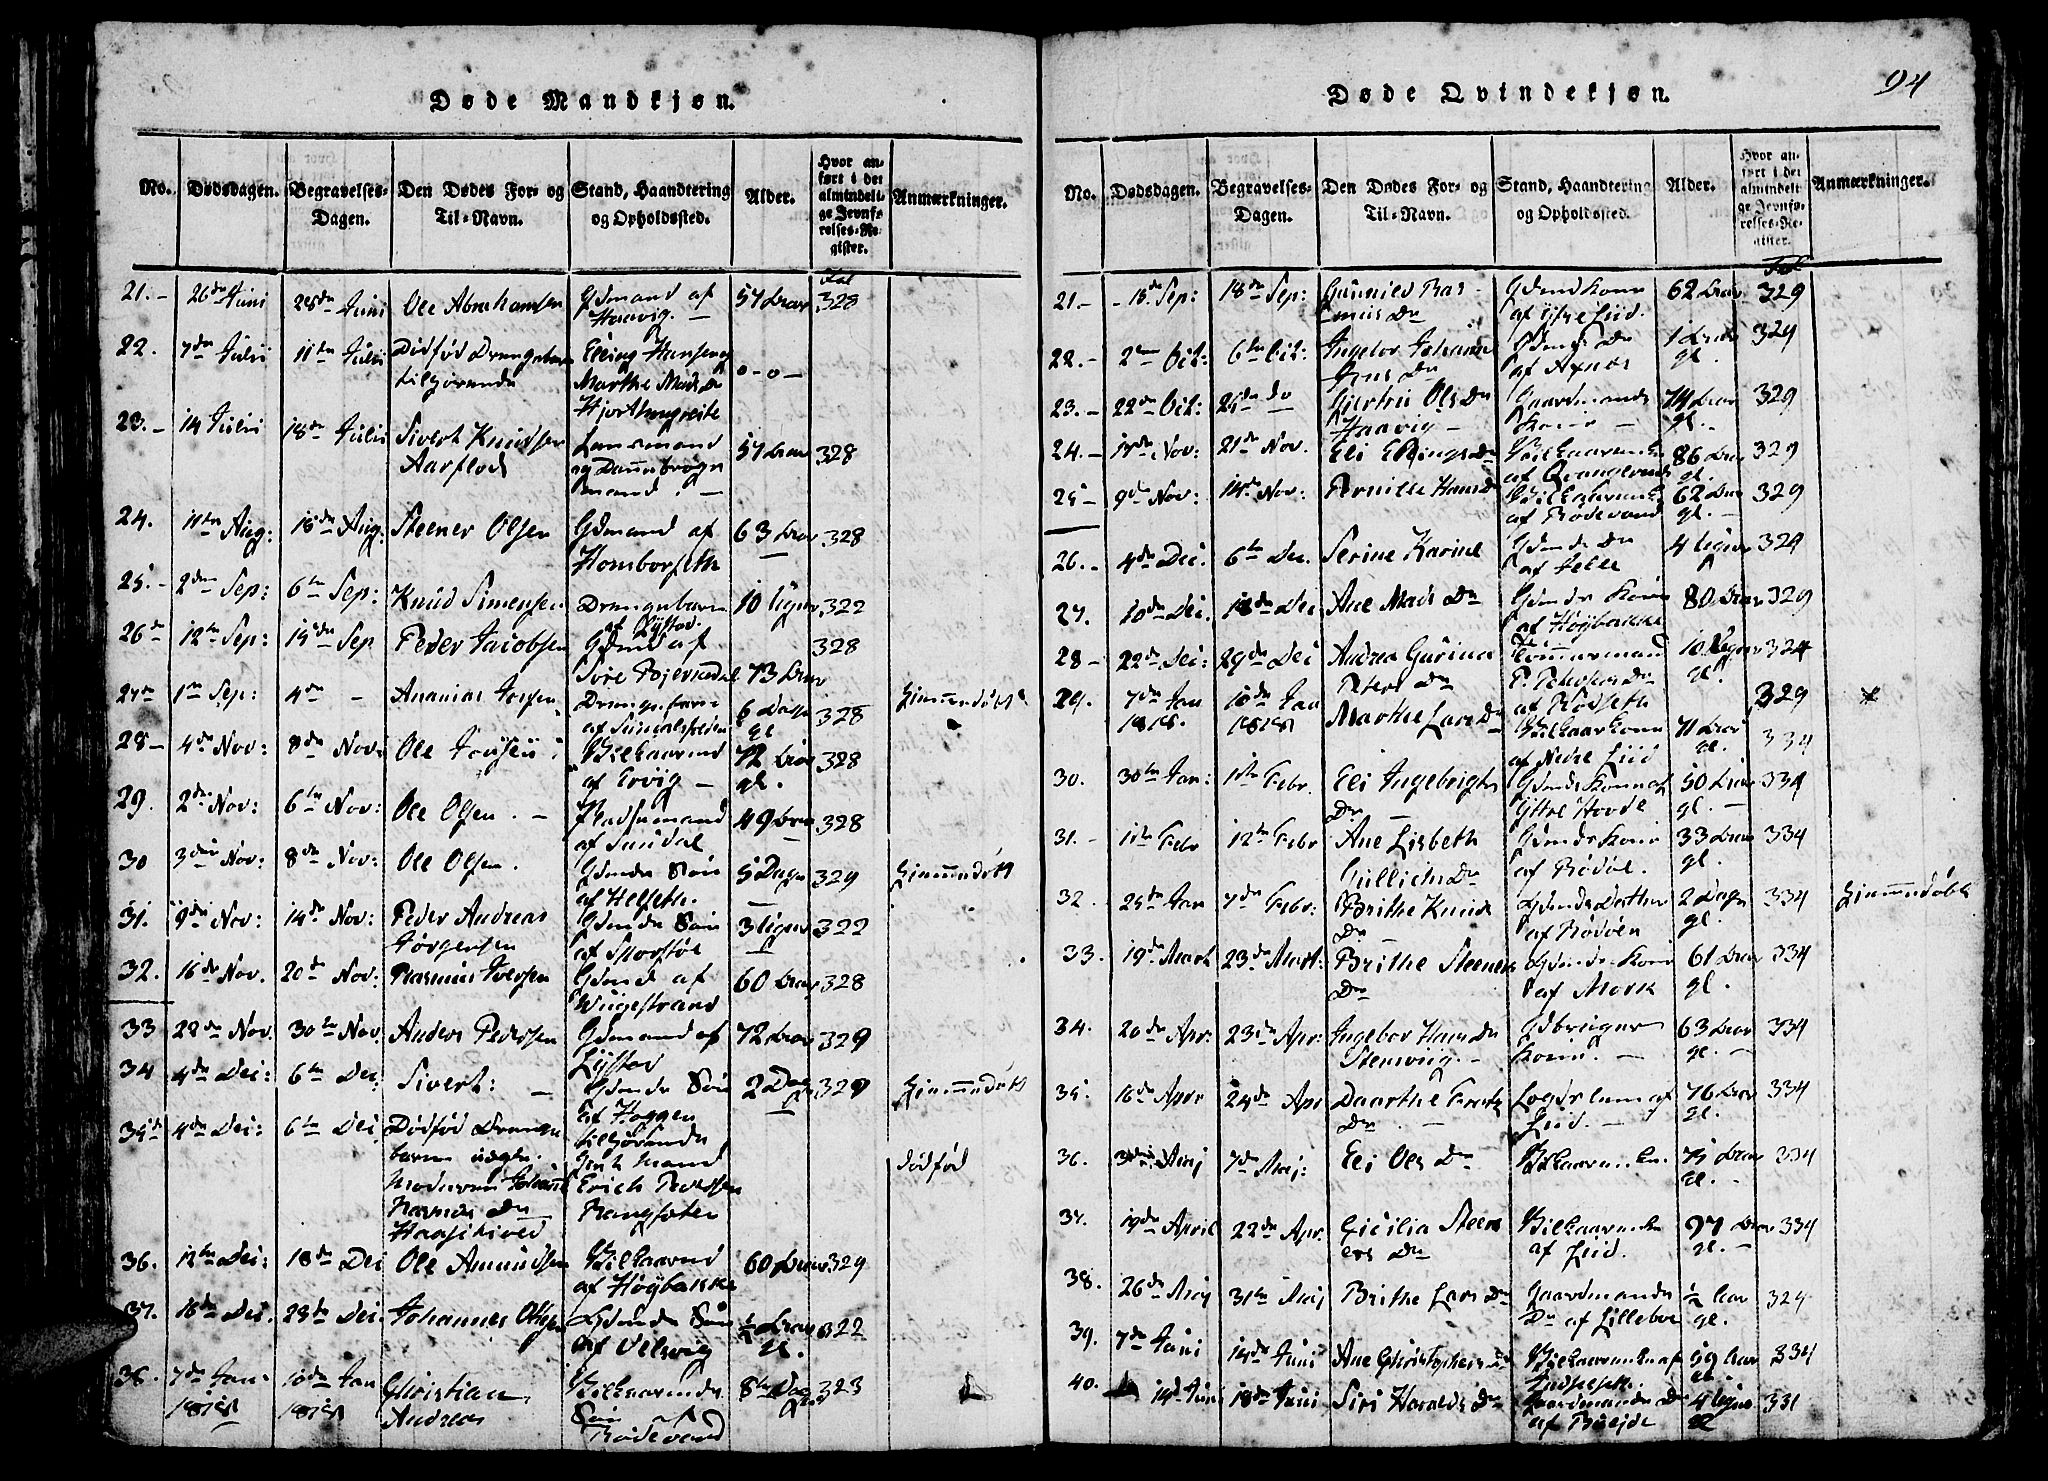 94
Døde Mandkjøn.
No. Dødsdagen. Begravelses-Dagen. Den Dødes For- og Til-Navn. Stand, Haandtering og Opholdssted. Alder. Hvor anført i det almindelige Jevnførelses-Register. Anmærkninger.
Fol
21. 26de Juni 28de Juni Ole Abrahamsen Gdmand af Haavig. 57 Aar 328
22. 7de Julii 11te Julii Dødfød Drengebarn tilhørende Elling Hansen og Marthe Mads Dr Hjortdngreite - o - o -
23. 14 Julii 18de Julii Sivert Knudsen Aarflod Lensmand og Dannebrogs mand. 57 Aar 328
24. 11te Aug: 18de Aug: Steener Olsen Gdmand af Homborseth 63 Aar 328
25. 2den Sep: 6te Sep: Knud Simensen Drengebarn af Lystad. 10 Uger 322
26de 12te Sep: 15de Sep Peder Jacobsen Gdmd af Søre Bjerkedal 73 Aar 328
27de 1te Sep: 4de Ananias Drengebarn af 6 Dage gl 328 Hiemmedøbt
28 4de Nov: 8de Nov: Ole Vilkaarmd af Ervig 72 Aar gl. 328
29. 2den Nov: 6te Nov: Ole Olsen. Pladsemand af Sundal 49 Aar 328
30 3die Nov: 8de Nov: Ole Olsen. Gdmds Søn af Helseth. 5 Dage 329 Hiemmedøbt
31. 9de Nov: 14de Nov: Peder Andreas Jørgensen Gdmds Søn af Storstøl 3 Uger 322
32. 16de Nov. 20de Nov: Rasmus Iversen Gdmd af Wiigestrand 60 Aar 328
33 22de Nov. 30te Nov. Anders Pedersen Gdmand af Lystad 72 Aar 329
34 4de Dec: 6te Dec: Sivert: Gdmds Søn af Hoggen 2 Dage 329 Hiemmedøbt
35te 4de Dec: 6te Dec: Dødfød Drenge barn uægte. Moderen Rasmus Dr tilhørende Gift Mand Erich Pedersen dødfød
36. 12te Dec: 18de Dec Ole Amundsen Vilkaarmd af Høgbakke 60 Aar 329
37. 16de Dec. 28de Dec. Johannes Gdmds Søn af Velsvig 1/2 Aar gl. 322
38. 7de Jan. 1818 10de Jan 1818 Christian Andreas Vilkaarmds Søn af Rødevand 8te Dage 323
Døde Qvindekjøn.
No. Dødsdagen. Begravelses-Dagen. Den Dødes For- og Til-Navn. Stand, Haandtering og Opholdssted. Alder. Hvor anført i det almindelige Jevnførelses-Register. Anmærkninger.
Fol
21. 15de Sep: 18de Sep: Gunnild Rasmus Dr Gdmds Kone af Yttre Liid. 62 Aar 329
22. 2den Oct: 6te Oct: Ingebor Johanne Jens Dr Gdmds Dr af Axnæs 1 Aar gl. 324
23. 22de Oct: 26de do Giertru Ols Dr Haavig Gaardmands Kone 74 Aar gl. 329
24. 17de Nov: 21de Nov. Eli Ellings Dr Vilkaarmds K af 86 Aar gl. 329
25 9de Nov: 14de Nov: Pernille Hans Dr Vilkaarmds K af Rødevand 62 Aar gl. 329
26. 4de Dec. 6te Dec. Serine Karine Gdmds Dr af 4 Uger 324
27. 10de Dec. 18de Dec Ane Mads Dr Gdmds Kone af Høgbakke 80 Aar 329
28 22de Dec: 29de Dec Andrea Gurina Peters Dr Tømmermand P. Pedersens Dr af Rødseth 10 Uger gl. 324
29. 7de Jan 1818. 10de Jan 1818 Marthe Lars Dr Vilkaarkone af Nedre Liid 71 Aar gl. 329 334
30. 30te Jan: 1te Febr. Eli Ingebrigts Dr Gdmds Kone af Yttre Hovde 50 Aar gl. 334
31. 1te Febr 12te Febr Ane Lisbeth Gullichs Dr Gdmds Kone af Rødal. 33 Aar gl. 334
32. 25de Jan 7de Febr: Brithe Knuds Dr Gdmds Datter af Rødøen 2 Dage gl. 334 Hiemmedøbt
33. 19de Mart 23de Mart: Brithe Steeners Dr Gdmds Kone af Mork 61 Aar gl. 334
34. 20de Apr: 23de Apr: Ingebor Hans Dr Gdbruger Kone. 63 Aar gl. 334
35. 16de Apr 24de Apr Daarthe Dr Logerlem af Liid. 76 Aar gl. 334
36. 3die Maj 7de Maj: Eli Ols Dr Vilkaarmds K 75 Aar gl. 334
37. 19de April 22de Apr. Cicilia Steeners Dr Vilkaarmds K af Liid. 97 Aar gl. 334
38. 26de Maj 31te Maj Brithe Lars Dr Gaardmands Dr af Lillebøe 1/2 Aar gl. 324
39. 7de Juni 14de Juni Ane Christophers Dr Vilkaarmds K af 59 Aar gl. 334
40. 14de Juni 18de Juni Siri Haralds Dr Gaardmands Dr af 4 Uger gl 331